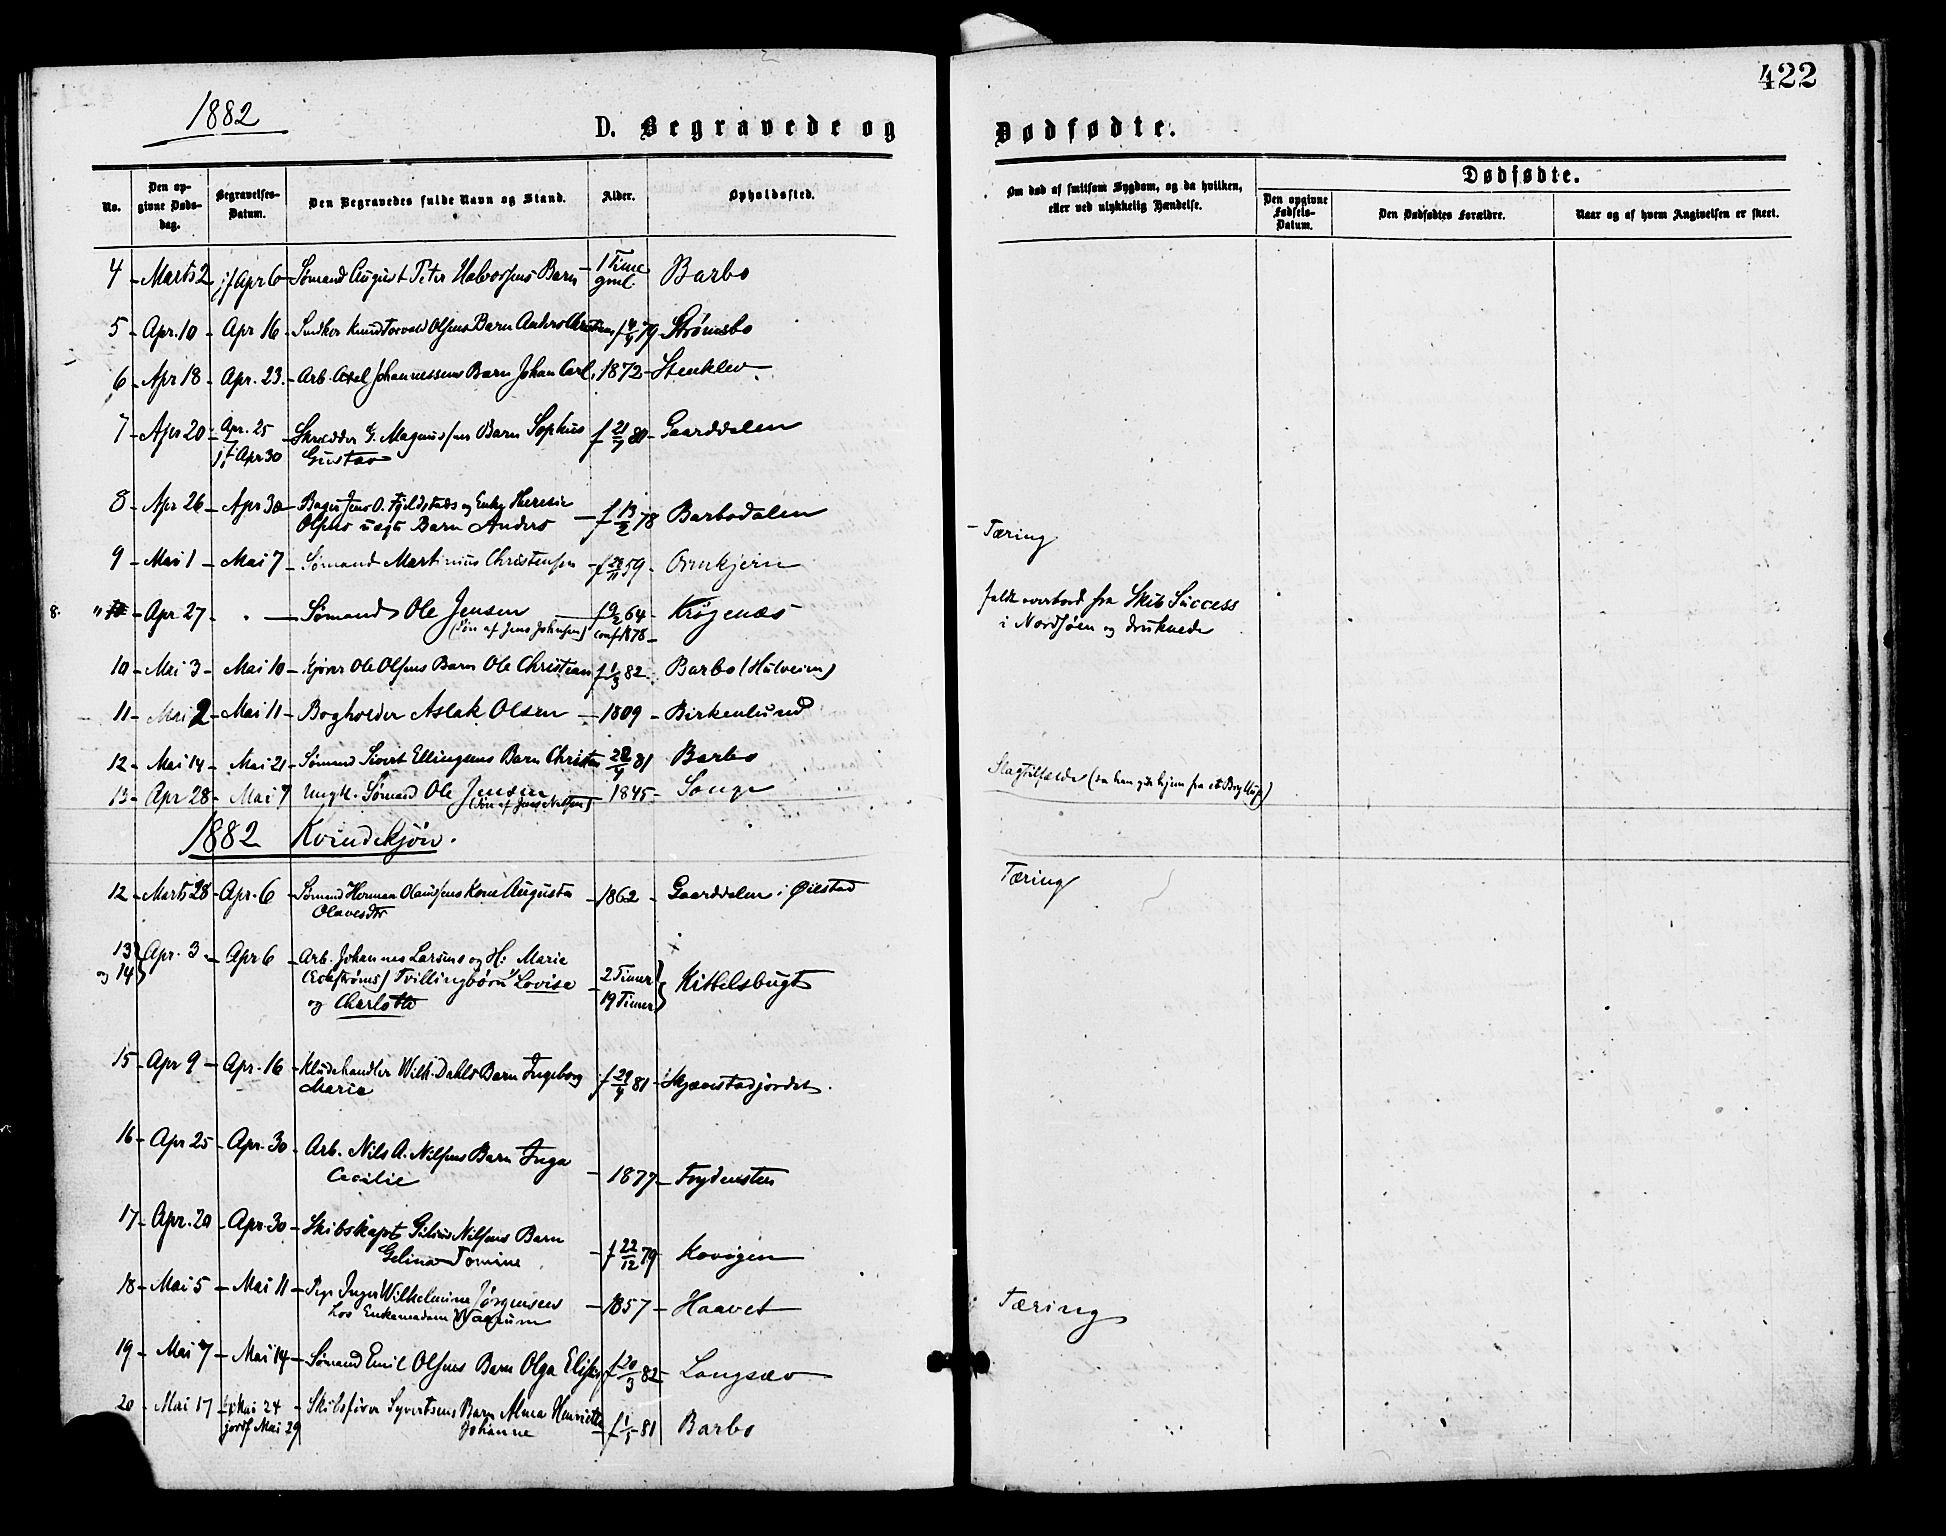 422
1882
D. Begravede og Dødfødte.
No.
Den opgivne Dødsdag.
Begravelses-Datum.
Den Begravedes fulde Navn og Stand.
Alder.
Opholdssted.
Om død af smitsom Sygdom, og da hvilken, eller ved ulykkelig Hændelse.
Dødfødte.
Den opgivne Fødsels-Datum.
Den Dødfødtes Forældre.
Naar og af hvem Angivelsen er skeet.
4 - Marts 2 - jf Apr 6 - Sømand August Peter Halvorsens Barn - 1 Time gml - Barbo
5 - Apr. 10 - Apr 16 - Snedker Knud Torvald Olsens Barn Anders Christian f 4/4 79 - Strømsbo
6 - Apr 18 - Apr. 23. - Arb. Axel Johannessens Barn Johan Carl, 1872 - Stenklev
7 - Apr 20 - Apr. 25 - Skrædder G. Magnussens Barn Sophus
jf Apr 30 Gustav f 21/7 80 - Gaarddalen
8 - Apr 26 - Apr 30 - Bager Jens O. Fjeldstads og Enke Theresie
Olsens uegte Barn Anders - f 13/2 78 Barbodalen - Tæring
9 - Mai 1 - Mai 7 - Sømand Martinius Christensen - f 20/11 59 - Ormkjern
8. " Apr 27 - Sømand Ole Jensen f 9/2 64 - Krøgenæs
(Søn af Jens Johnsen) conf 1878 -
faldt overbord fra Skib Success
i Nordsjøen og druknede
10 - Mai 3 - Mai 10 - Kjører Ole Olsens Barn Ole Christian f 1/3 82 - Barbo (Hulveien)
11 - Mai 2 - Mai 11 - Bogholder Aslak Olsen - 1809 - Birkenlund
12 - Mai 14 - Mai 21 - Sømand Sivert Ellingsens Barn Christen 28/4 81 Barbo
13 - Apr 28 - Mai 7 Ungk. Sømand Ole Jensen - 1845 - Songe
(Søn af Jens Nilsen)
Slagtilfælde (da han gik hjem fra et Bryllup)
1882 Kvindekjøn.
12 - Marts 28 - Apr. 6 - Sømand Herman Olaussens Kone Augusta
Olavesdtr - 1862 - Gaarddalen i Øiestad Tæring
13 og 14 } Apr. 3 - Apr 6 - Arb. Johannes Larsens og H. Marie
(Eckstrøms) Tvillingbørn Lovise - 2 Timer
og Charlotte 19 Timer } Kittelsbugt
15 - Apr 9 - Apr. 16 - Kludehandler Wilh. Dahls Barn Ingeborg
Marie f 29/4 81 - Skjævestadjordet.
16 - Apr 25 - Apr. 30 - Arb. Nils A. Nilsens Barn Inga
Cecilie - 1877 - Frydensten
17 - Apr. 20 - Apr. 30 - Skibskapt Gilius Nilsens Barn
Gelina Tomine - f 22/12 79 Kovigen
18 - Mai 5 - Mai 11 - Pige Inger Wilhelmine Jørgensen
hos Enkemadam - 1857 - Haavet Tæring
19 - Mai 7 - Mai 14 - Sømand Emil Olsens Barn Olga Elise f 20/3 82 - Langsæv
20 - Mai 17 - Mai 24 - Skibsfører Syvertsens Barn Alma Henriette
jordf Mai 29 Johanne - f 1/1 81 Barbo